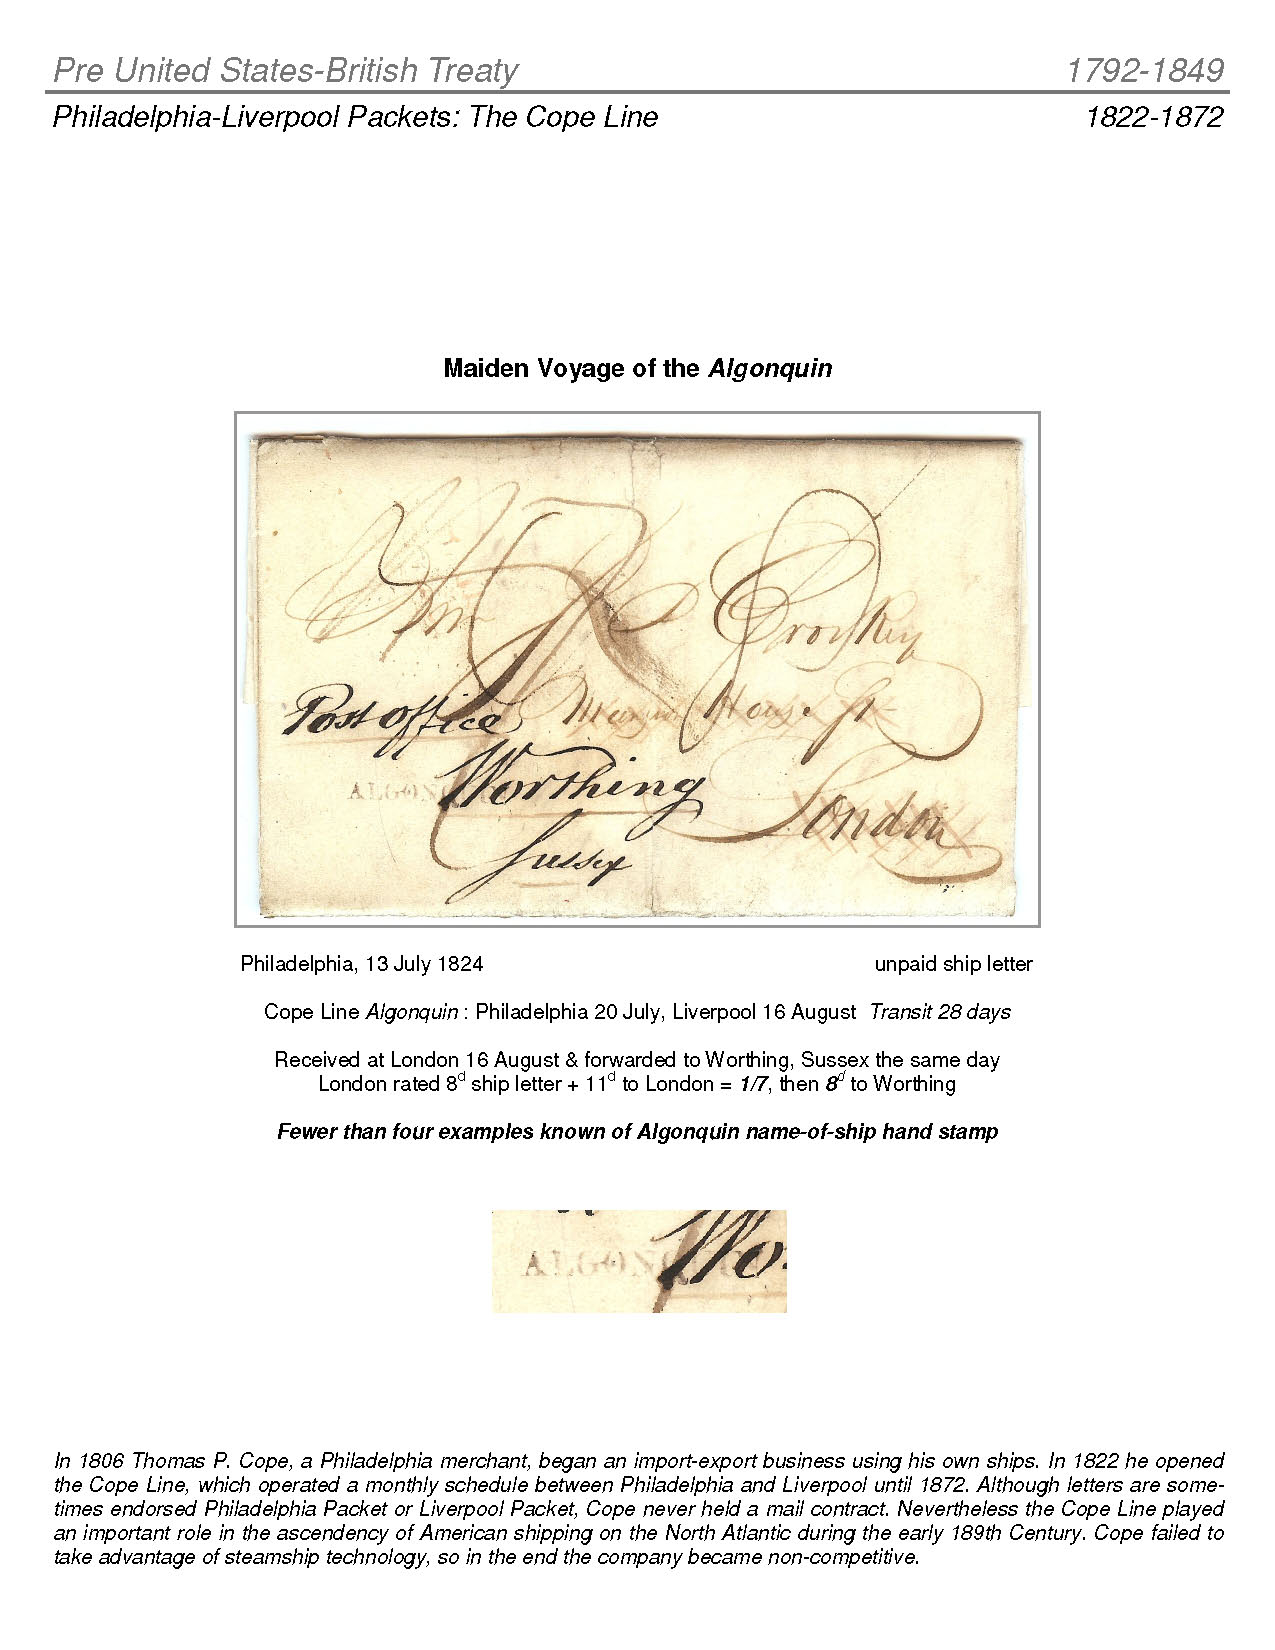 Pre United States-British Treaty 1792-1849
Philadelphia-Liverpool Packets: The Cope Line 1822-1872
Maiden Voyage of the Algonquin
Post office
ALGON
Worthing
Sussex
London
Philadelphia, 13 July 1824 unpaid ship letter
Cope Line Algonquin : Philadelphia 20 July, Liverpool 16 August Transit 28 days
Received at London 16 August & forwarded to Worthing, Sussex the same day
London rated 8d ship letter + 11d to London = 1/7, then 8d to Worthing
Fewer than four examples known of Algonquin name-of-ship hand stamp
ALGON
Wo
In 1806 Thomas P. Cope, a Philadelphia merchant, began an import-export business using his own ships. In 1822 he opened
the Cope Line, which operated a monthly schedule between Philadelphia and Liverpool until 1872. Although letters are some-
times endorsed Philadelphia Packet or Liverpool Packet, Cope never held a mail contract. Nevertheless the Cope Line played
an important role in the ascendency of American shipping on the North Atlantic during the early 189th Century. Cope failed to
take advantage of steamship technology, so in the end the company became non-competitive.